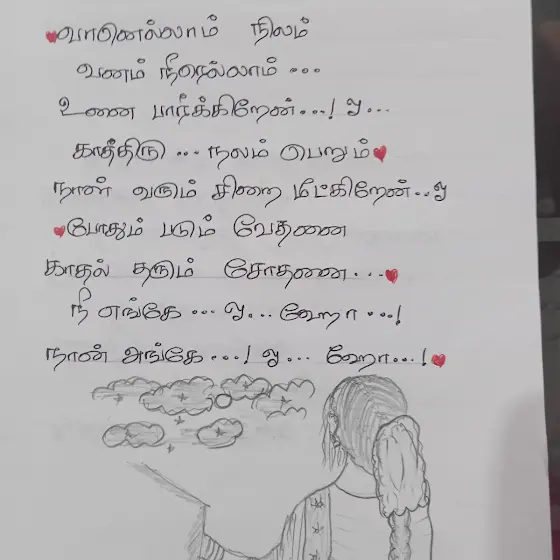 வானெல்லாம் நிலம்
வனம் நீரெல்லாம் ...
உனை பார்க்கிறேன்...! ஓ...
காத்திரு ... நலம் பெறும்
நான் வரும் சிறை மீட்கிறேன்..ஓ
போதும் படும் வேதனை
காதல் தரும் சோதனை...
நீ எங்கே ... ஓ... ஹோ ...!
நான் அங்கே ...! ஓ... ஹோ...!